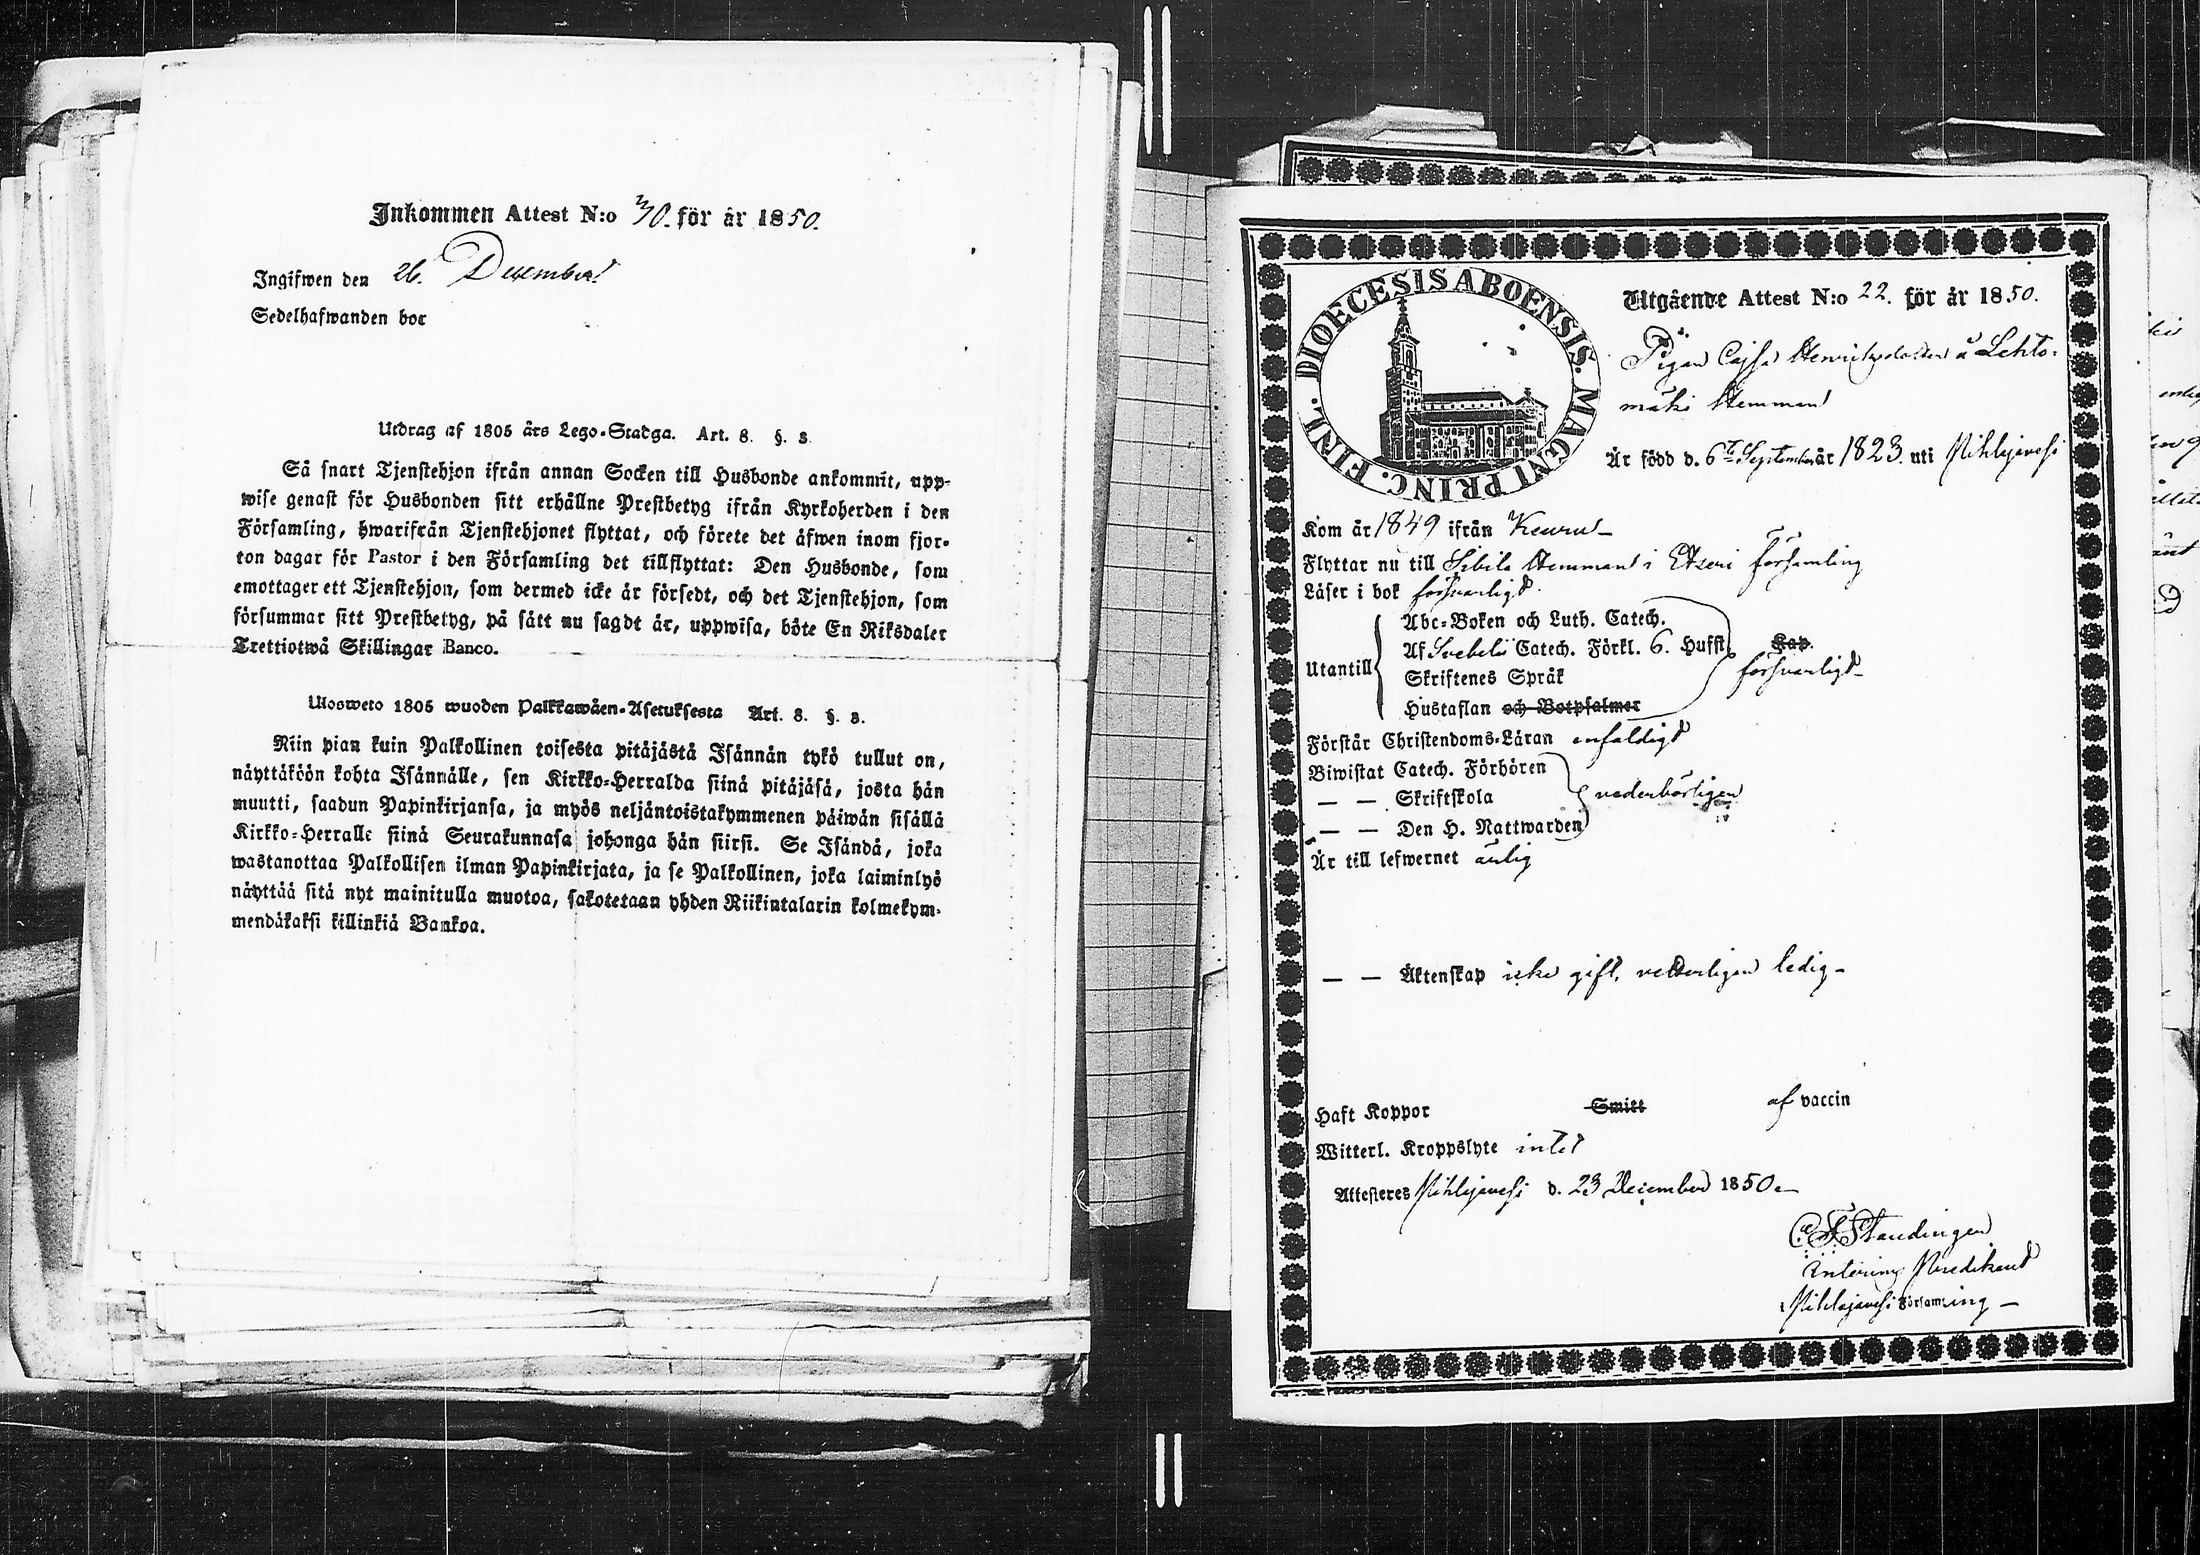 Inkommen Attest N:o 70. för år 1850.
Ingifwen den 26. December
Sedelhafwanden bor
Utdrag af 1805 års Lego-Stadga. Art. 8. §. 3.
Så snart Tjenstehjon ifrån annan Socken till Husbonde ankommit, upp-
wise genast för Husbonden sitt erhållne Prestbetyg ifrån Kyrkoherden i den
Församling, hwarifrån Tjenstehjonet flyttat, och förete det äfwen inom fjor-
ton dagar för Pastor i den Församling det tillflyttat: Den Husbonde, som
emottager ett Tjenstehjon, som dermed icke är försedt, och det Tjenstehjon, som
försummar sitt Prestbetyg, på sätt nu sagdt är, uppwisa, böte En Riksdaler
Trettiotwå Skillingar Banco.
Ulosweto 1805 wuoden Palkkawäen-Asetuksesta Art. 8. §. 3.
Niin pian kuin Palkollinen toisesta pitäjästä Isännän tykö tullut on,
näyttäköön kohta Isännälle, sen Kirkko-Herralda siinä pitäjäsä, josta hän
muutti, saadun Papinkirjansa, ja myös neljäntoistakymmenen päiwän sisällä
Kirkko-Herralle siinä Seurakunnasa johonga hän siirsi. Se Isändä, joka
wastanottaa Palkollisen ilman Papinkirjata, ja se Palkollinen, joka laiminlyö
näyttää sitä nyt mainitulla muotoa, sakotetaan yhden Riikintalarin kolmekym-
mendäkaksi killinkiä Bankoa.
DIOECESIS ABOENSIS. MAGNI PRINC. FINL.
Utgående Attest N:o 22. för år 1850.
Pigan Cajsa Henricsdotter å Lehto-
mäki Hemman
Är född d. 6te September år 1823. uti Pihlajavesi
Kom år 1849 ifrån Keuru
Flyttar nu till Sibila Hemman i Etseri församling
Läser i bok försvarligt.
Abc-Boken och Luth. Catech.
Af Svebelii Catech. Förkl. 6. Hufst. Kap.
Utantill försvarligt
Skriftenes Språk
Hustaflan och Botpsalmer
Förstår Christendoms-Läran enfaldigt
Biwistat Catech. Förhören
— — Skriftskola vederbörligen
— — Den H. Nattwarden
Är till lefwernet ärlig
— — Äktenskap icke gift, vetterligen ledig
Haft Koppor Smitt af vaccin
Witterl. Kroppslyte intet
Attesteres Pihlajavesi d. 23 December 1850
C. F. Staudinger
Interims Predikant
Pihlajavesi Församling